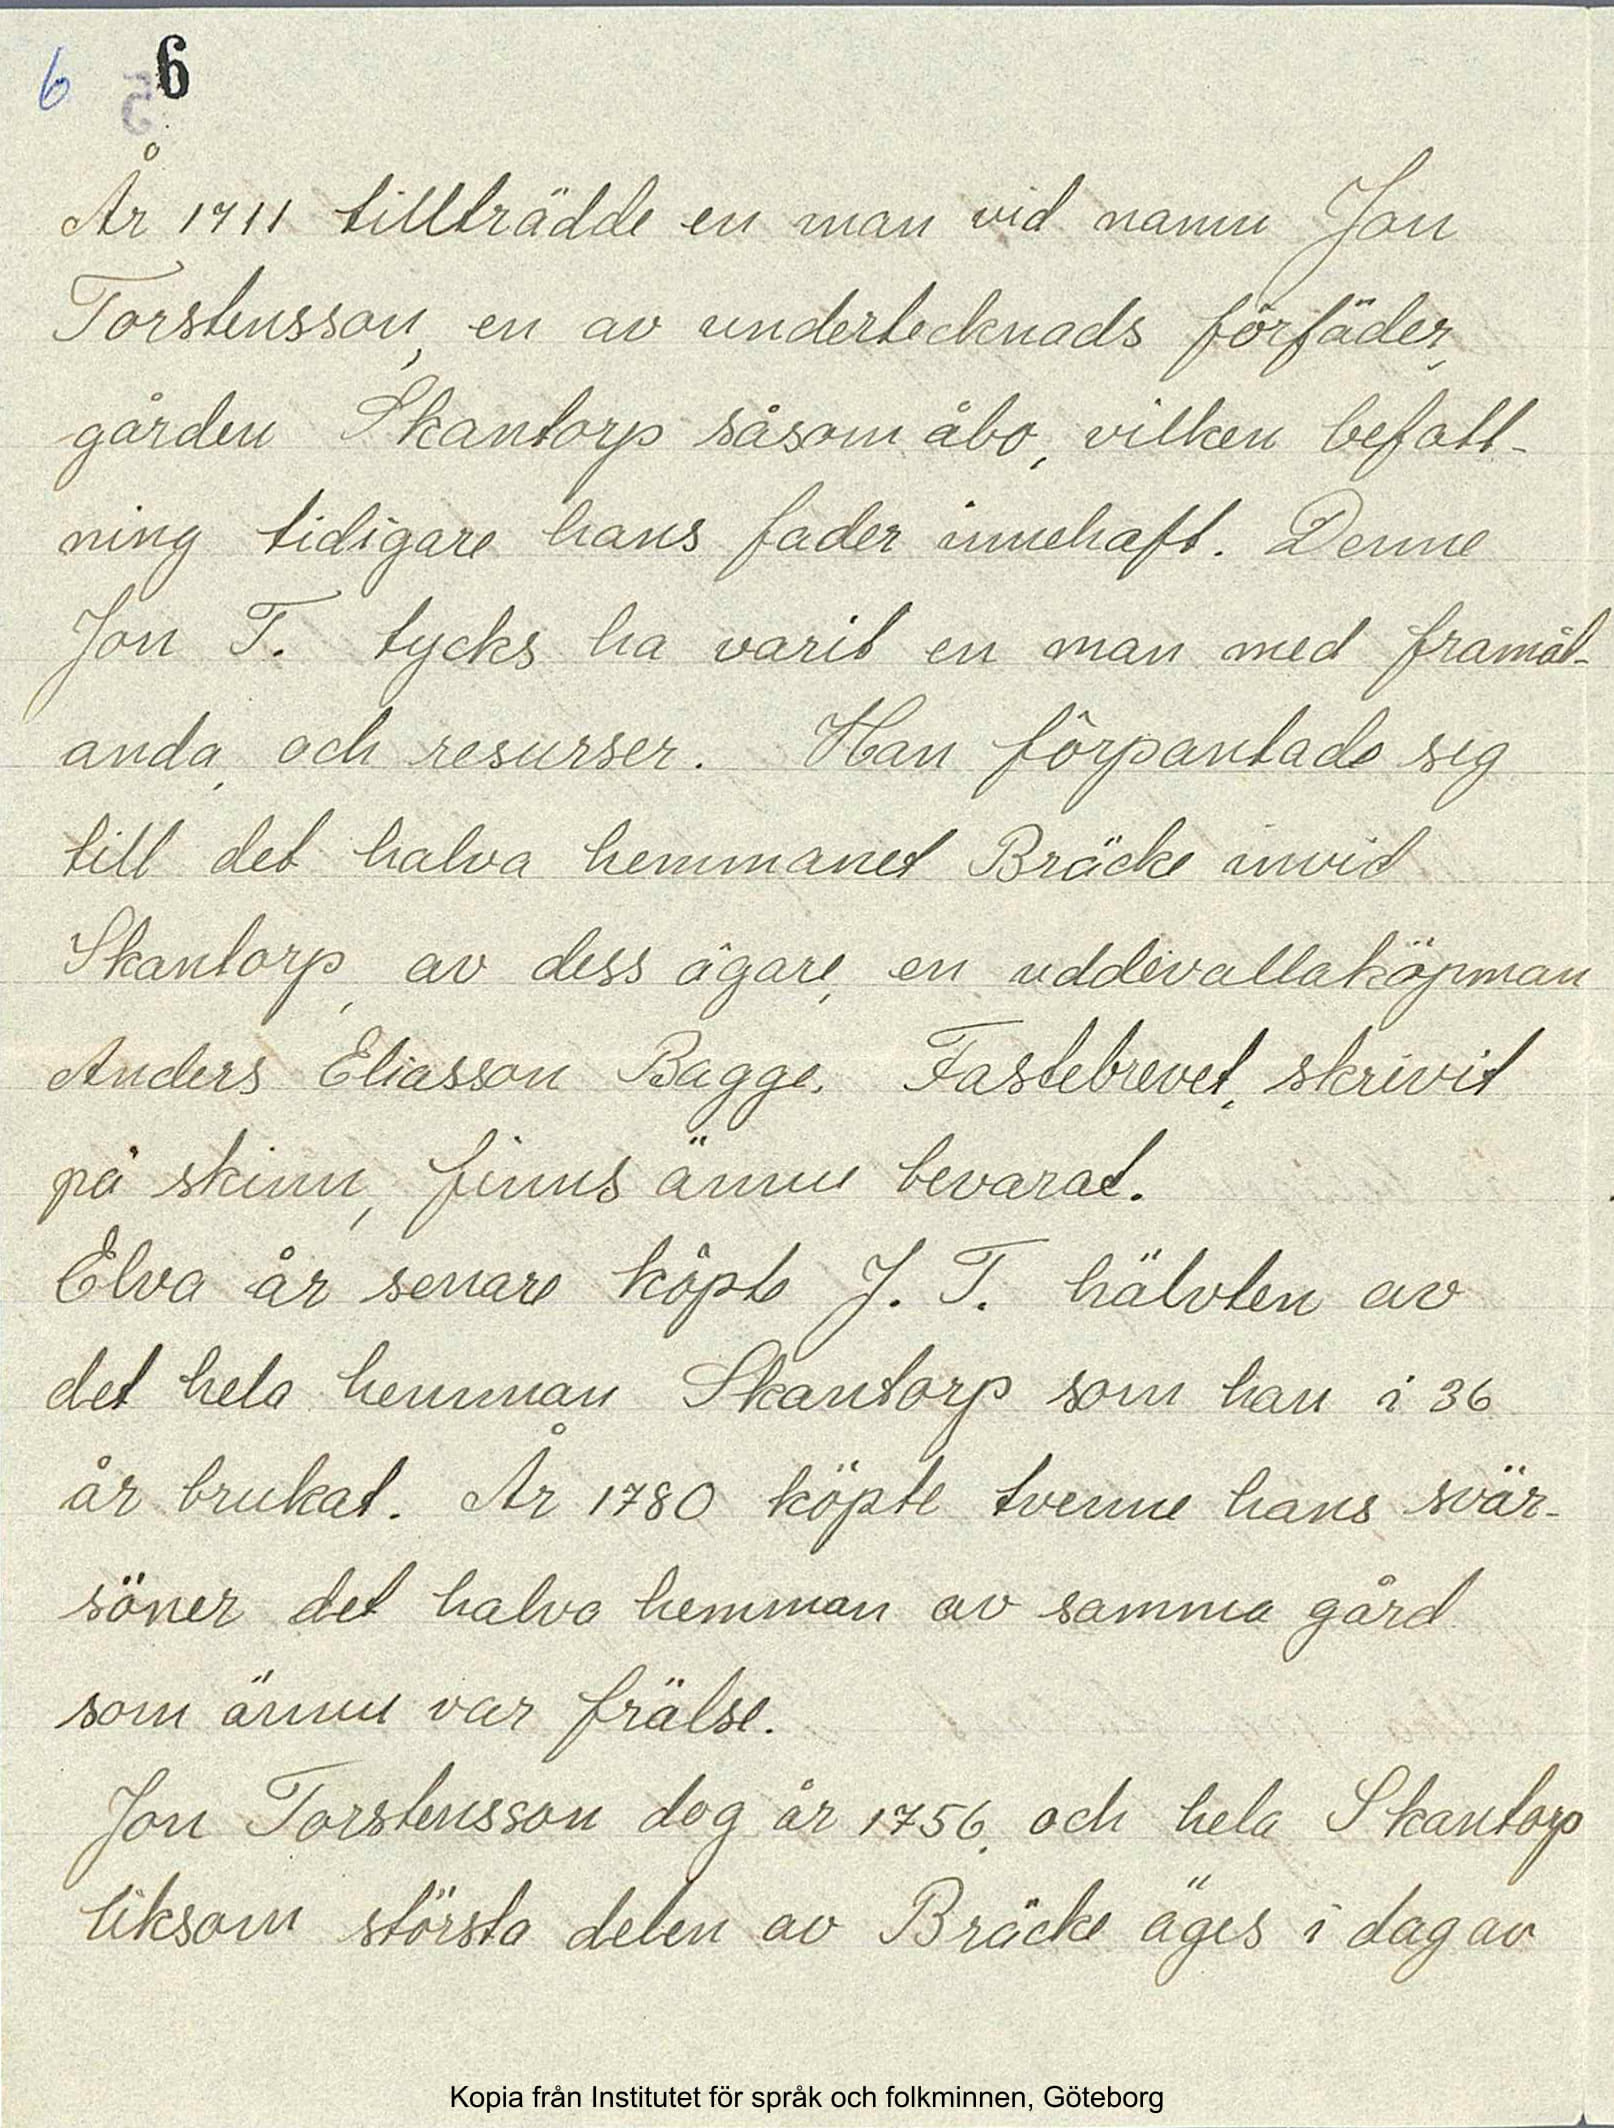 6 6
5
År 1711 tillträdde en man vid namn Jon
Torstensson, en av undertecknads förfäder,
gården Skantorp såsom åbo, vilken befatt-
ning tidigare hans fader innehaft. Denne
Jon T. tycks ha varit en man med framåt-
anda, och resurser. Han förpantade sig
till det halva hemmanet Bräcke invid
Skantorp, av dess ägare, en uddevallaköpman
Anders Eliasson Bagge. Fastebrevet, skrivit
på skinn, finns ännu bevarat.
Elva år senare köpte J. T. hälvten av
det hela hemman Skantorp som han i 36
år brukat. År 1780 köpte tvenne hans svär-
söner det halva hemman av samma gård
som ännu var frälse.
Jon Torstensson dog år 1756, och hela Skantorp
liksom största delen av Bräcke äges i dag av
Kopia från Institutet för språk och folkminnen, Göteborg